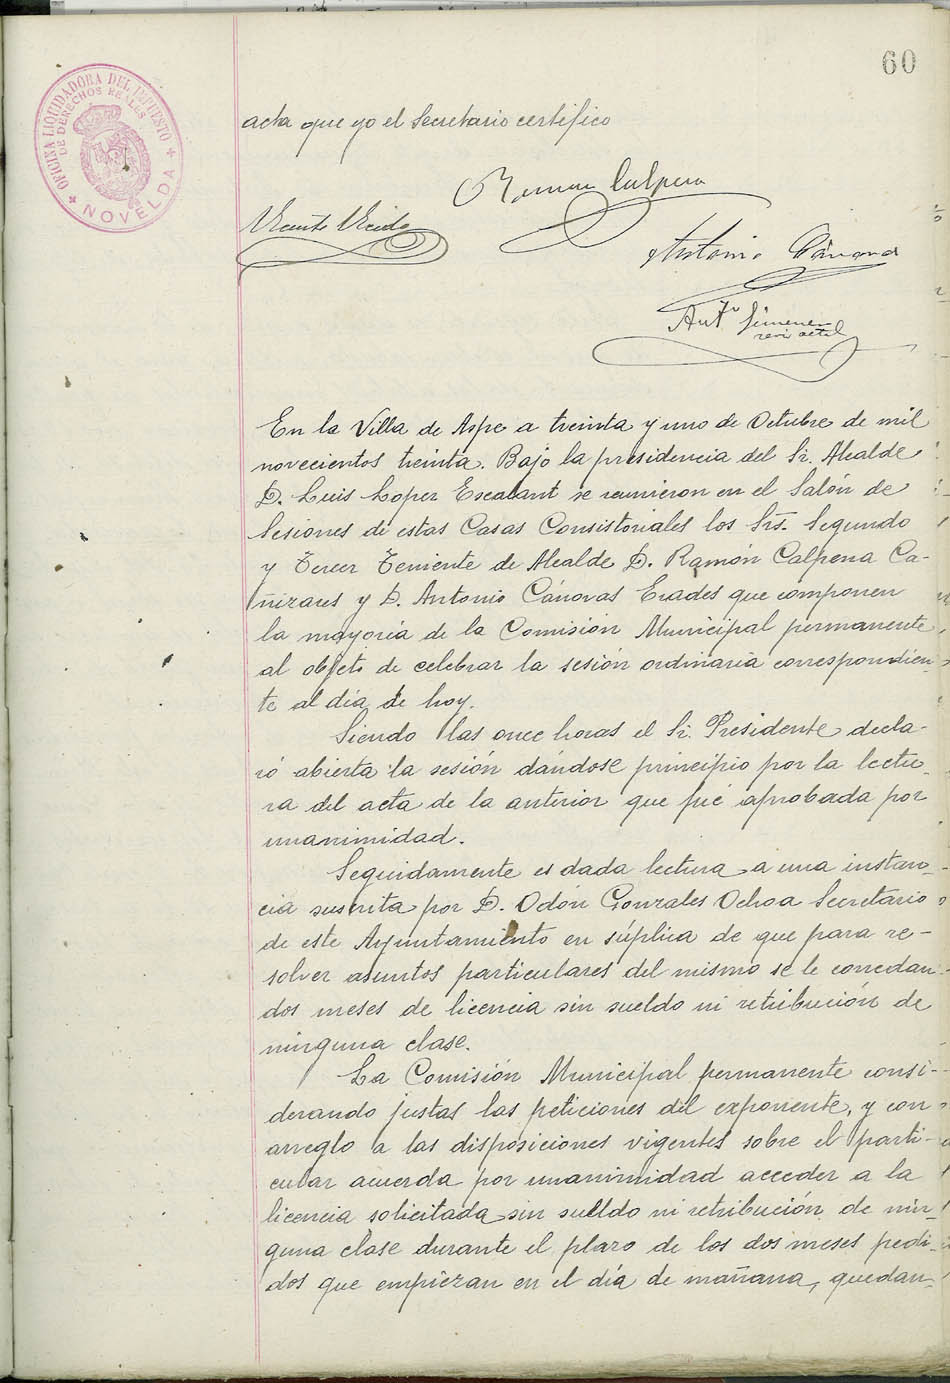 60
OFICINA LIQUIDADORA DEL IMPUESTO
DE DERECHOS REALES
NOVELDA
acta que yo el Secretario certifico
Ramon Calpena
Vicente
Antonio Cánovas
Antº Gimenez
En la Villa de Aspe a treinta y uno de Octubre de mil
novecientos treinta. Bajo la presidencia del Sr. Alcalde
D. Luis Lopez Escalant se reunieron en el Salón de
Sesiones de estas Casas Consistoriales los Srs. Segundo
y Tercer Teniente de Alcalde D. Ramón Calpena Ca-
ñizares y D. Antonio Cánovas Erades que componen
la mayoría de la Comisión Municipal permanente
al objeto de celebrar la sesión ordinaria correspondien-
te al día de hoy.
Siendo las once horas el Sr. Presidente decla-
ró abierta la sesión dándose principio por la lectu-
ra del acta de la anterior que fué aprobada por
unanimidad.
Seguidamente es dada lectura a una instan-
cia suscrita por D. Odón Gonzales Ochoa Secretario
de este Ayuntamiento en súplica de que para re-
solver asuntos particulares del mismo se le concedan
dos meses de licencia sin sueldo ni retribución de
ninguna clase.
La Comisión Municipal permanente consi-
derando justas las peticiones del exponente, y con
arreglo a las disposiciones vigentes sobre el parti-
cular acuerda por unanimidad acceder a la
licencia solicitada sin sueldo ni retribución de nin-
guna clase durante el plazo de los dos meses pedi-
dos que empiezan en el día de mañana, quedan-